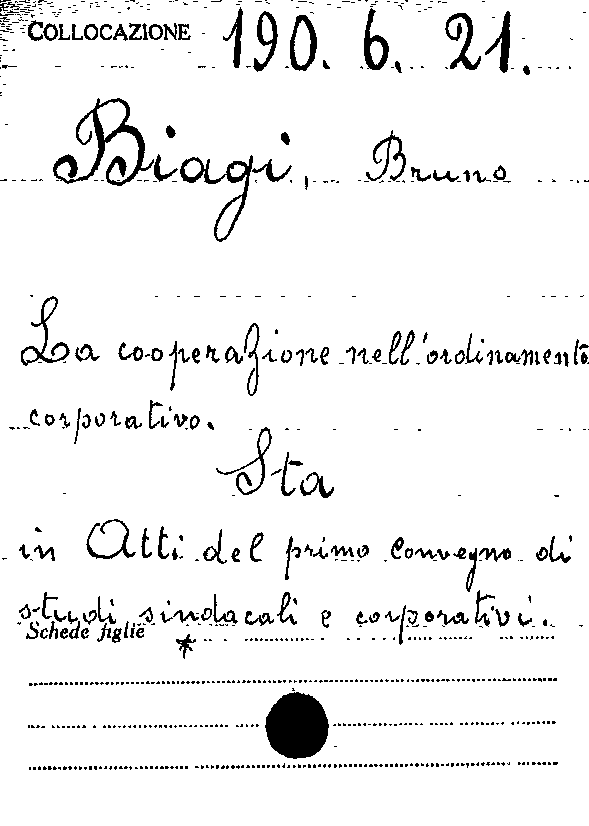 COLLOCAZIONE 190. 6. 21.
Biagi, Bruno
La cooperazione nell'ordinamento
corporativo.
Sta
in Atti del primo convegno di
studi sindacali e corporativi.
Schede figlie *